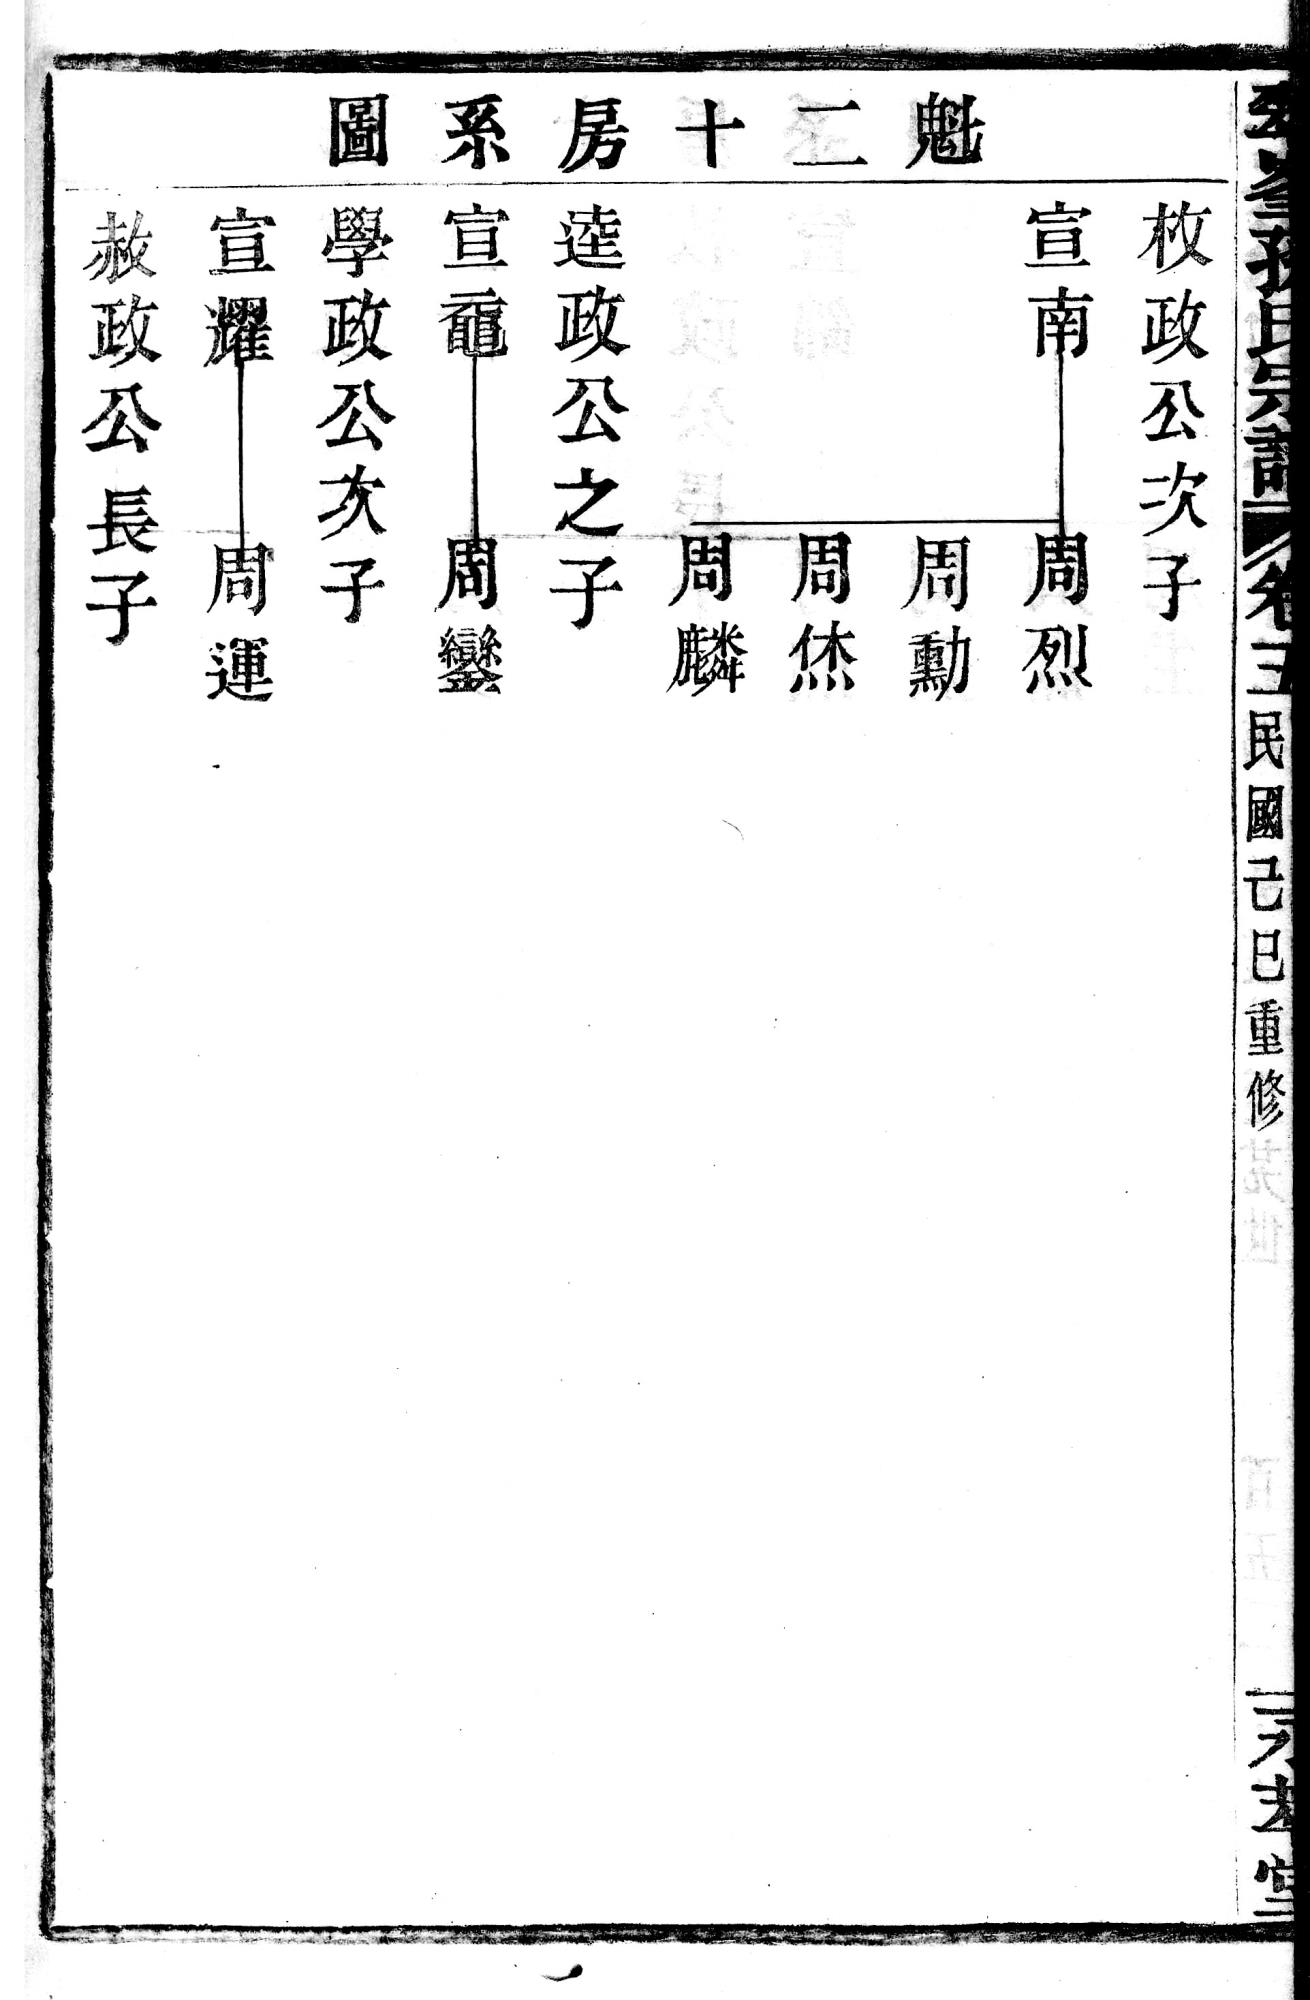 魁二十房系圖
枚政公次子
宣南
周烈
周勳
周烋
周麟
逵政公之子
宣黿
周鑾
學政公次子
宣耀
周運
赦政公長子
孫氏宗譜
卷五
民國己巳重修
堂